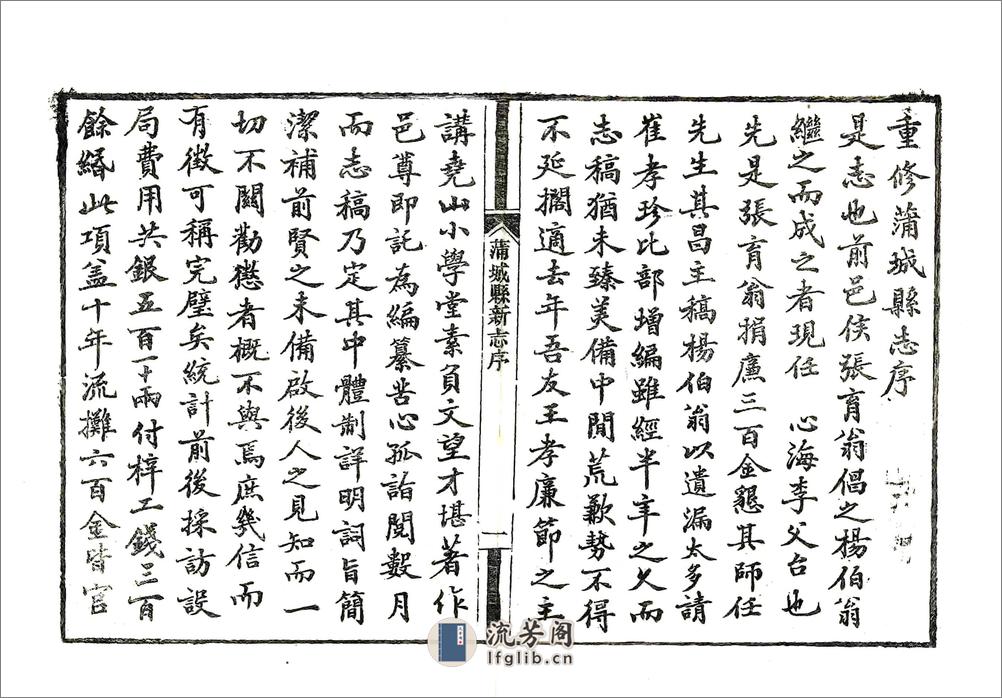 重修蒲城縣志序
是志也前邑侯張育翁倡之楊伯翁
繼之而成之者現任 心海李父台也
先是張育翁捐廉三百金懇其師任
先生其昌主稿楊伯翁以遺漏太多請
崔孝珍比部增編雖經半年之久而
志稿猶未臻美備中間荒歉勢不得
不延擱適去年吾友王孝廉節之主
蒲城縣新志序
一
講堯山小學堂素負文望才堪著作
邑尊即託為編纂苦心孤詣閱數月
而志稿乃定其中體制詳明詞旨簡
潔補前賢之未備啟後人之見知而一
切不關勸懲者概不與焉庶幾信而
有徵可稱完璧矣統計前後採訪設
局費用共銀五百一十兩付梓工錢三百
餘緡此項盖十年流攤六百金皆官
流芳阁
lfglib.cn